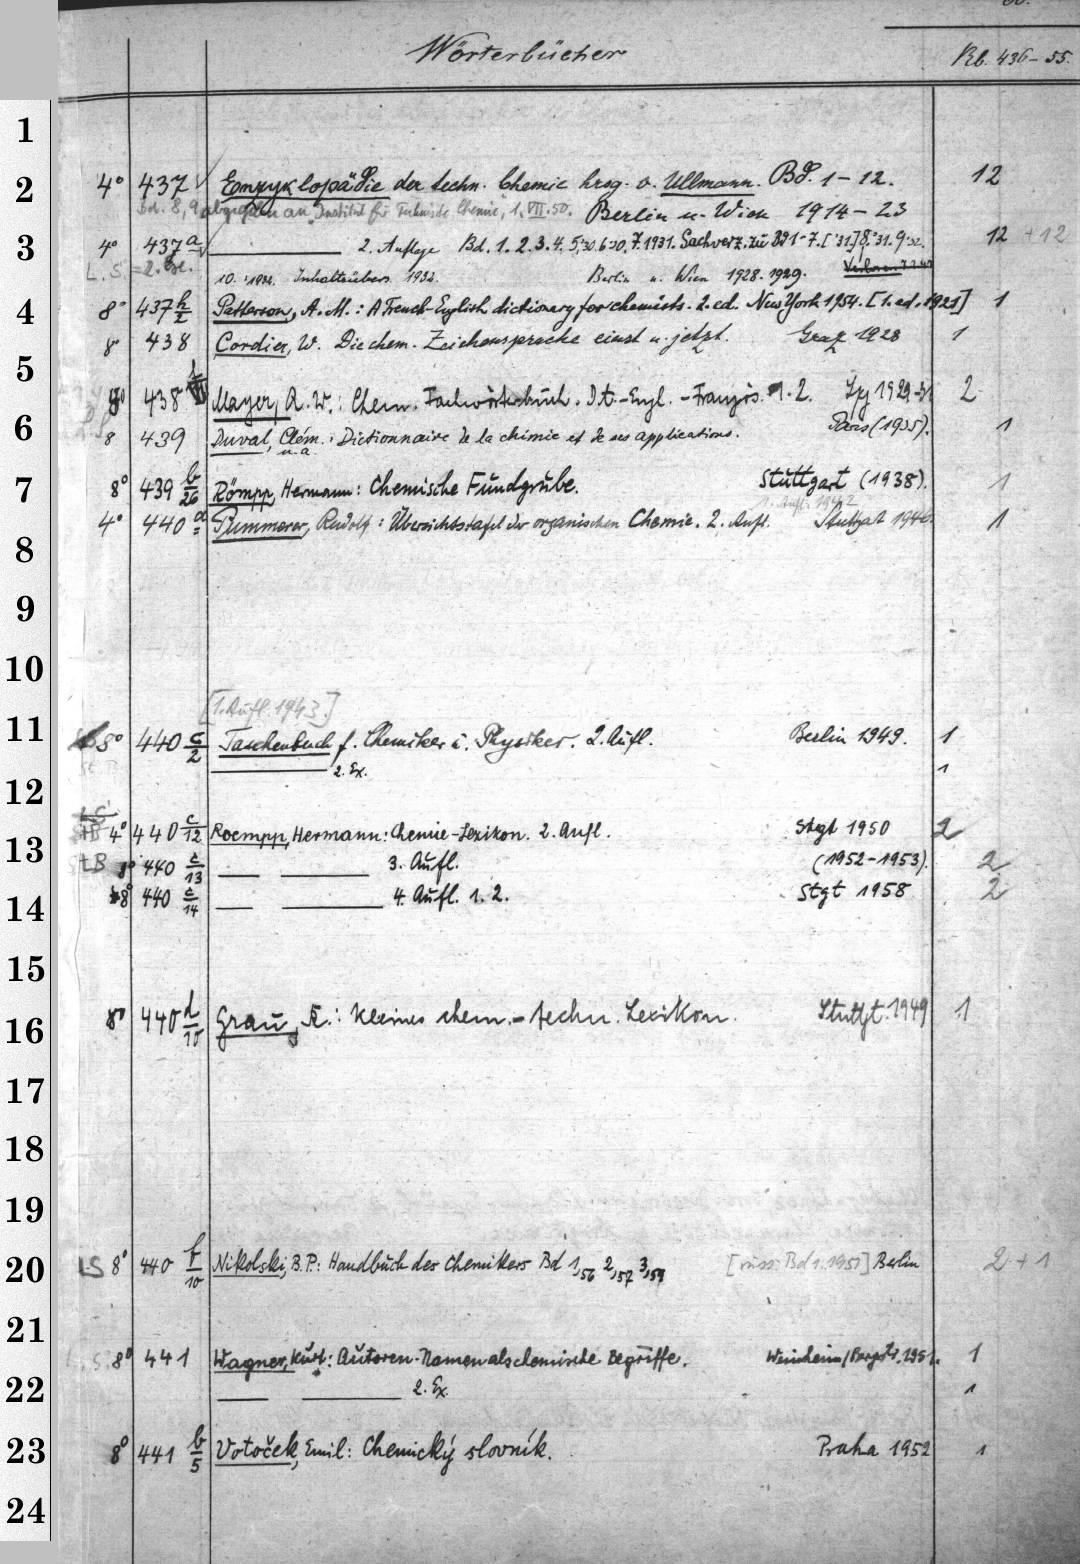 Wörterbücher
Rb. 436-55.
1
2
4° 437 Enzyklopädie der techn. Chemie hrsg. v. Ullmann. Bd. 1-12. 12
Bd. 8, 9 abgegeben an Institut für Technische Chemie, 1.VII.50. Berlin u. Wien 1914-23
3
4° 437 a 2. Auflage Bd. 1. 2. 3. 4. 5,'30. 6'30. 7.1931. Sachverz. zu Bd 1-7. ['31] 8.'31. 9'32. 12 + 12
L. S. = 2. Ex. 10. '1932. Inhaltsübers. 1932. Berlin u. Wien 1928. 1929.
4
8° 437 h/2 Patterson, A. M.: A French-English dictionary for chemists. 2. ed. New York 1954. [1. ed. 1921] 1
8° 438 Cordier, W. Die chem. Zeichensprache einst u. jetzt. Graz 1928 1
5
8° 438 Mayer, A. W.: Chem. Fachwörterbuch. Dt.-Engl.-Französ. 1. 2. Lpz 1929-31 2
6
8 439 Duval, Clém. u. a.: Dictionnaire de la chimie et de ses applications. Paris (1935). 1
7
8° 439 b/26 Römpp, Hermann: Chemische Fundgrube. Stuttgart (1938). 1
4° 440 a Pummerer, Rudolf: Übersichtstafel der organischen Chemie. 2. Aufl. Stuttgart 1946. 1
8
9
10
[1. Aufl. 1943.]
11
8° 440 c/2 Taschenbuch f. Chemiker u. Physiker. 2. Aufl. Berlin 1949. 1
2. Ex. 1
12
4° 440 c/12 Roempp, Hermann: Chemie-Lexikon. 2. Aufl. Stgt 1950 2
13
StB 8° 440 c/13 3. Aufl. (1952-1953). 2
8° 440 c/14 4. Aufl. 1. 2. Stgt 1958 2
14
15
16
8° 440 d/10 Grau, K.: Kleines chem.-techn. Lexikon. Stuttgt. 1949 1
17
18
19
20
LS 8° 440 f/10 Nikolski, B. P.: Handbuch des Chemikers Bd 1,56 2,57 3,59 [russ. Bd 1. 1951] Berlin 2 + 1
21
L. S. 8° 441 Wagner, Kurt: Autoren-Namen als chemische Begriffe. Weinheim/Bergstr. 1951. 1
22
2. Ex. 1
23
8° 441 b/5 Votoček, Emil: Chemický slovník. Praha 1952 1
24